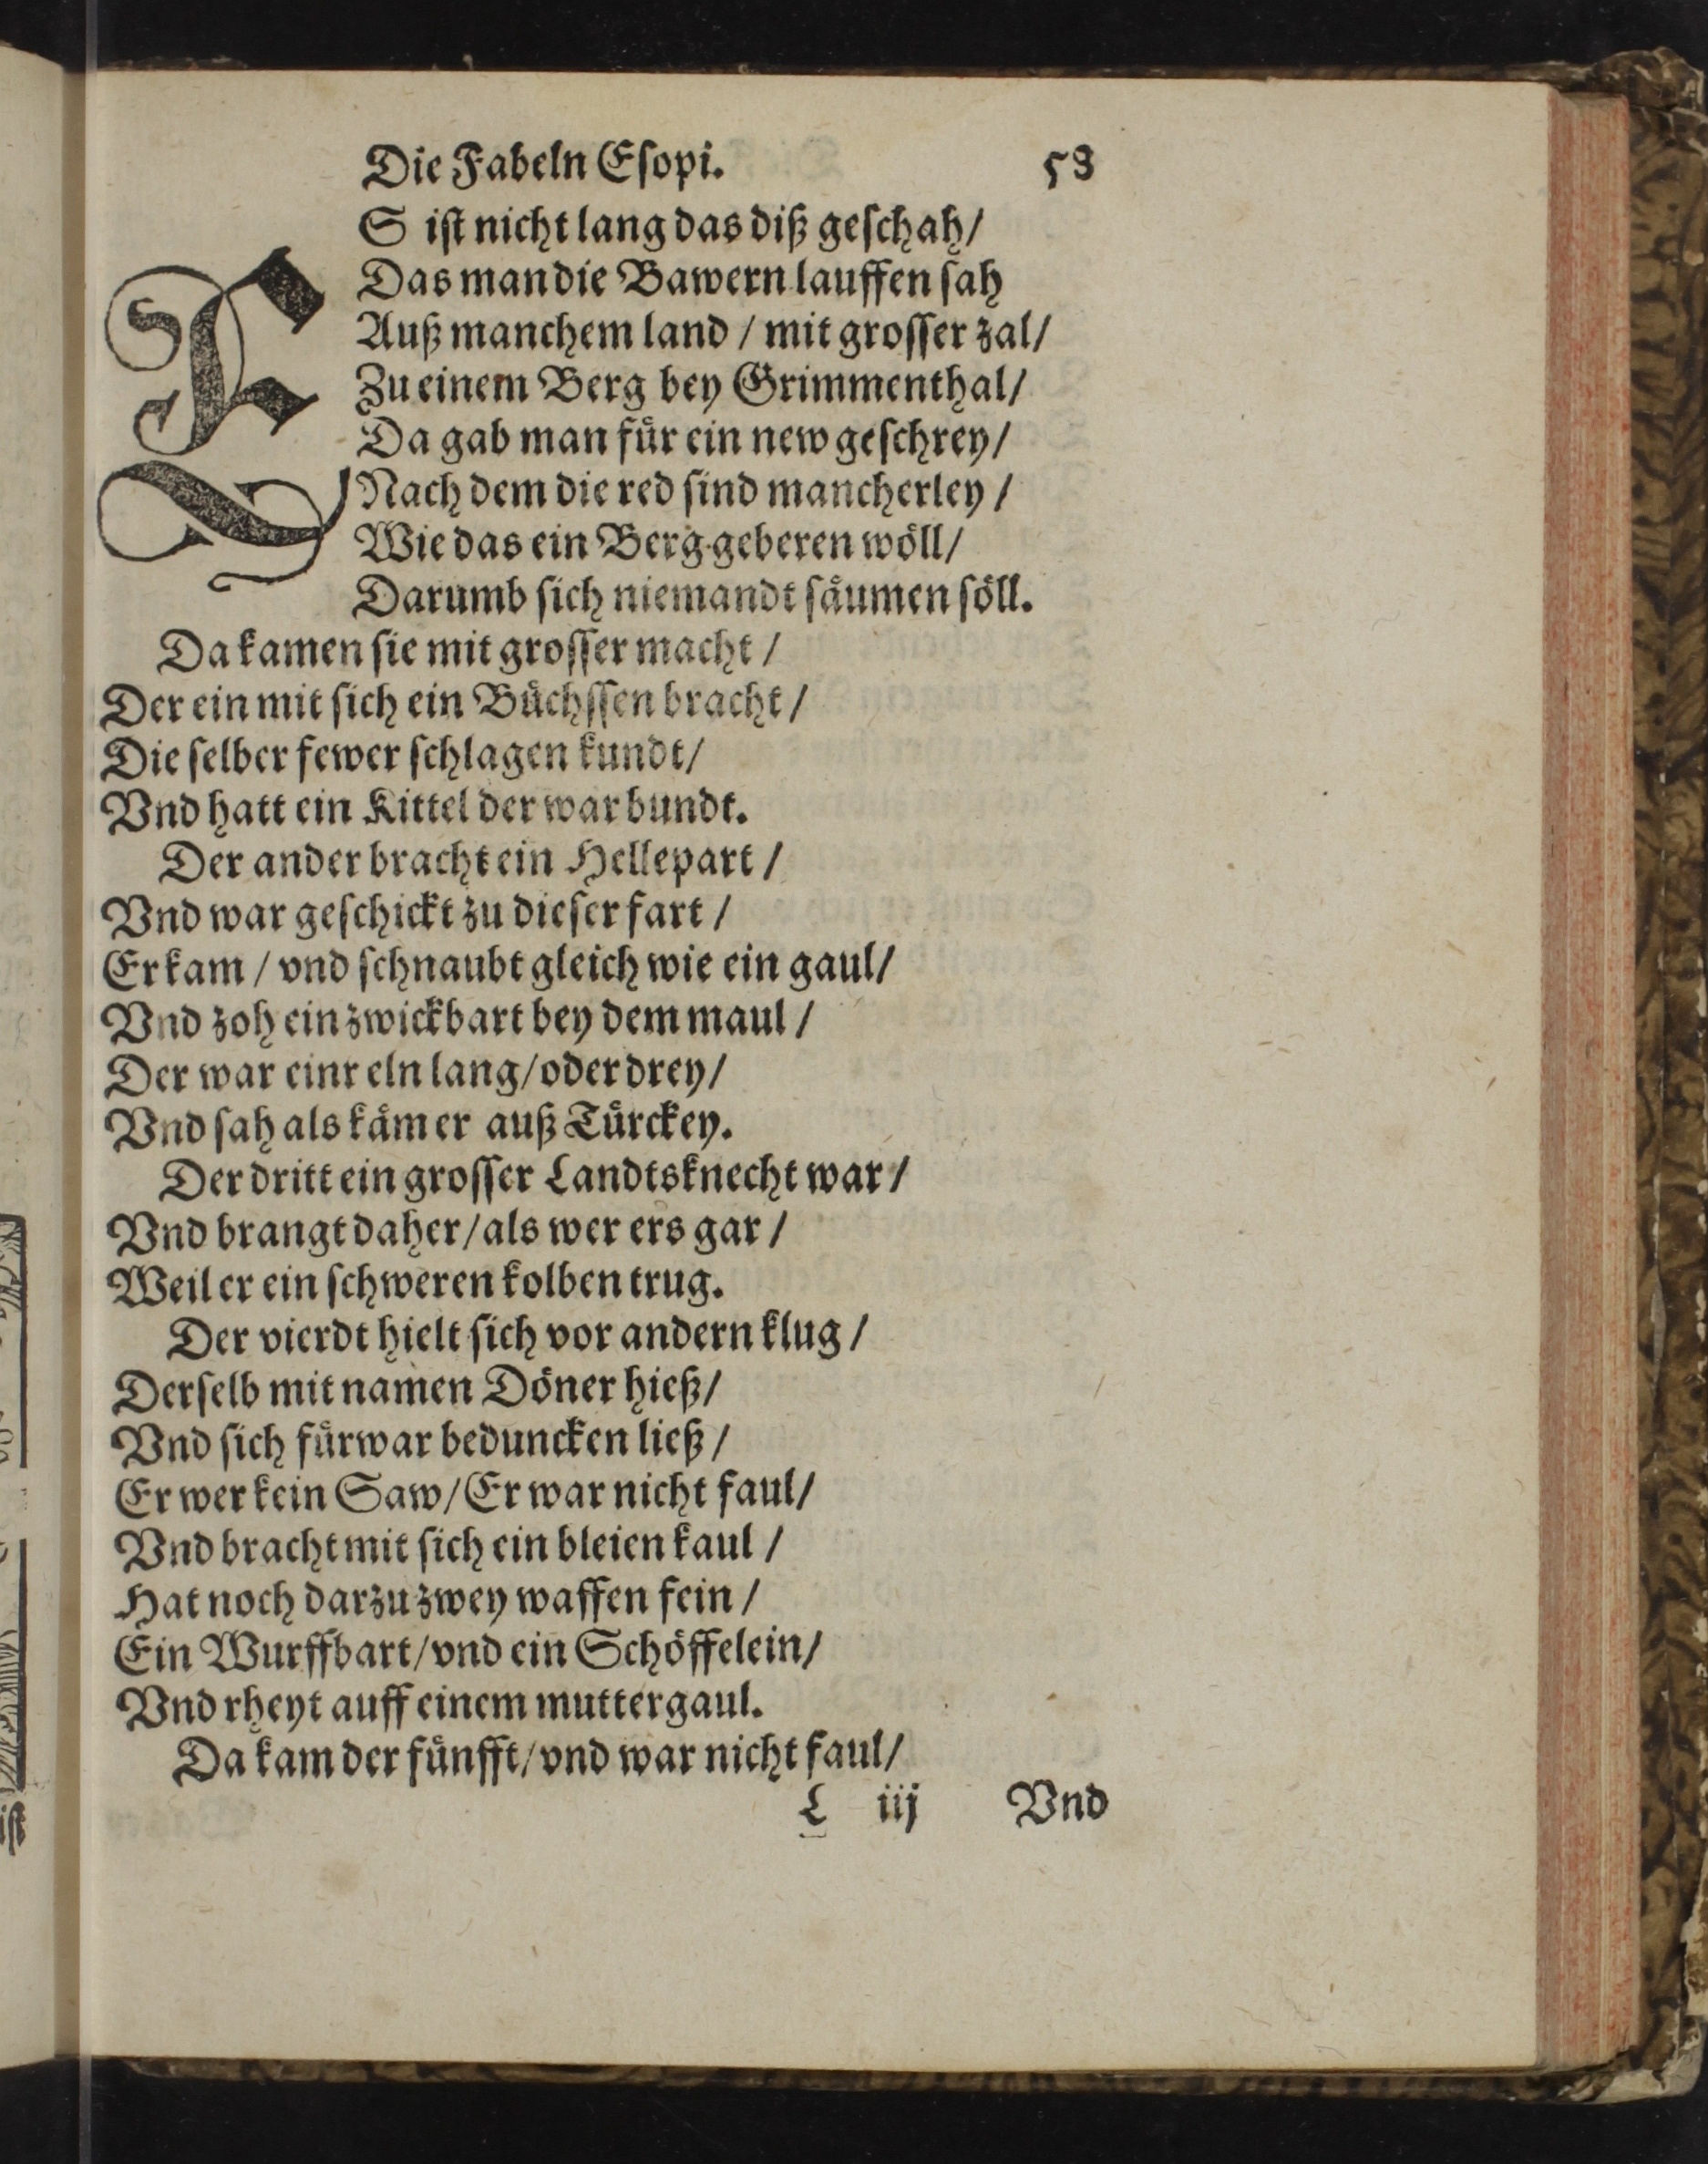 Die Fabeln Eſopi. 53
ES iſt nicht lang das diß geſchah/
Das man die Bawern lauffen ſah
Auß manchem land / mit groſſer zal/
Zu einem Berg bey Grimmenthal/
Da gab man fuͤr ein new geſchrey/
Nach dem die red ſind mancherley /
Wie das ein Berg geberen woͤll/
Darumb ſich niemandt ſaͤumen ſoͤll.
Da kamen ſie mit groſſer macht /
Der ein mit ſich ein Buͤchſſen bracht /
Die ſelber fewer ſchlagen kundt/
Vnd hatt ein Kittel der war bundt.
Der ander bracht ein Hellepart /
Vnd war geſchickt zu dieſer fart /
Er kam / vnd ſchnaubt gleich wie ein gaul/
Vnd zoh ein zwickbart bey dem maul /
Der war einr eln lang/oder drey/
Vnd ſah als kaͤm er auß Tuͤrckey.
Der dritt ein groſſer Landtsknecht war /
Vnd brangt daher/als wer ers gar /
Weil er ein ſchweren kolben trug.
Der vierdt hielt ſich vor andern klug /
Derſelb mit namen Doͤner hieß/
Vnd ſich fuͤrwar beduncken ließ /
Er wer kein Saw/Er war nicht faul/
Vnd bracht mit ſich ein bleien kaul /
Hat noch darzu zwey waffen fein /
Ein Wurffbart/vnd ein Schoͤffelein/
Vnd rheyt auff einem muttergaul.
Da kam der fuͤnfft/vnd war nicht faul/
L iij Vnd